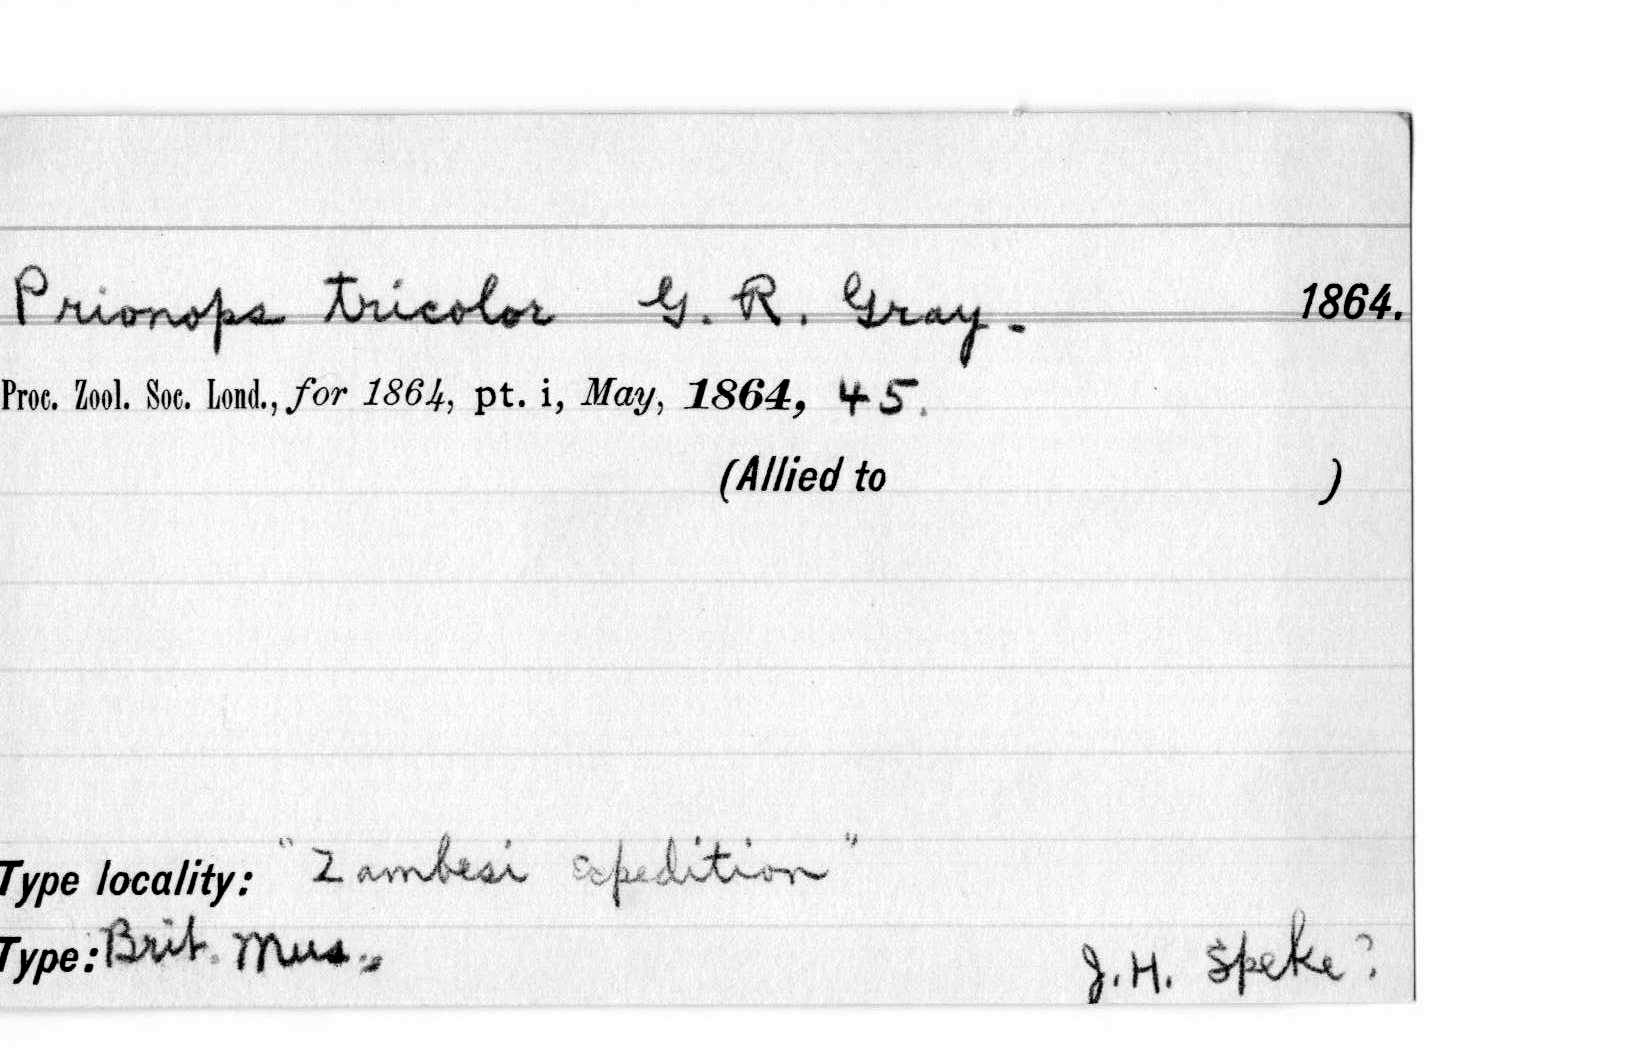 Prionops tricolor G. R. Gray. 1864.
Proc. Zool. Soc. Lond., for 1864, pt. i, May, 1864, 45.
(Allied to )
Type locality: "Zambesi Expedition"
Type: Brit. Mus. J. H. Speke?